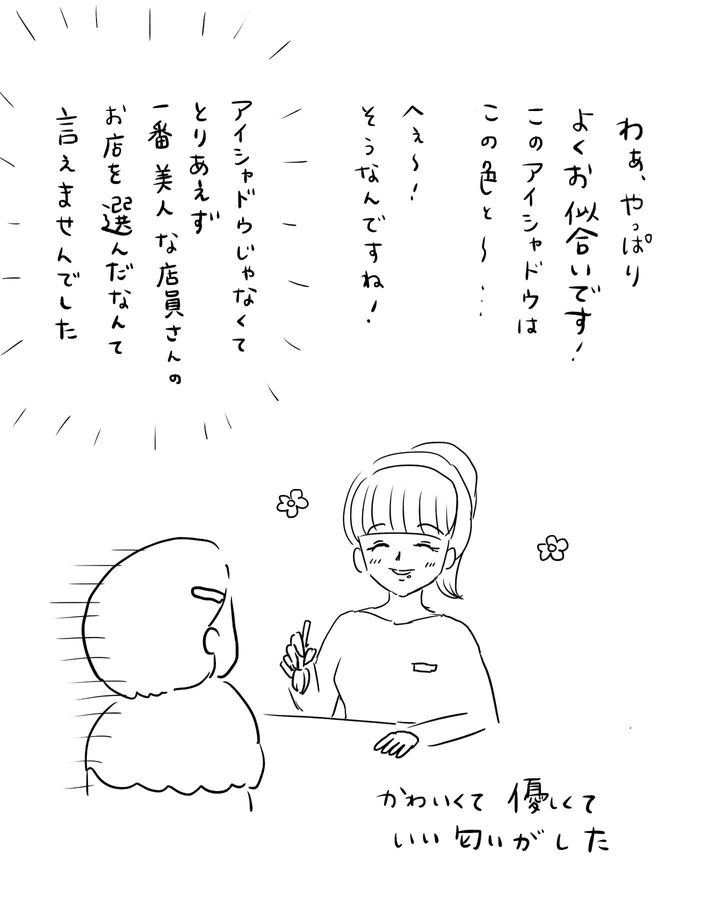 わぁ、やっぱり
よくお似合いです!
このアイシャドウは
この色と〜…
へぇ〜!
そうなんですね!
アイシャドウじゃなくて
とりあえず
一番美人な店員さんの
お店を選んだなんて
言えませんでした
かわいくて優しくて
いい匂いがした